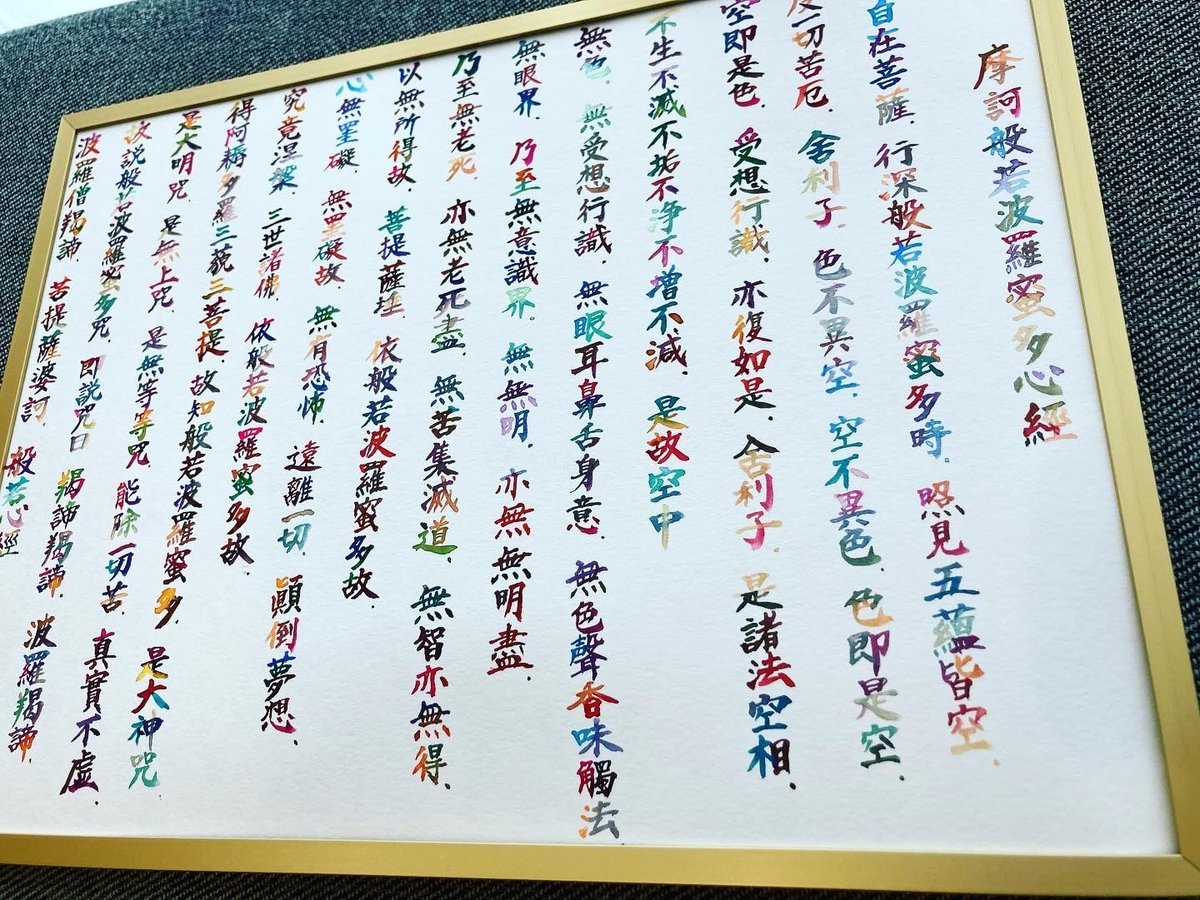 摩訶般若波羅蜜多心經
自在菩薩. 行深般若波羅蜜多時. 照見五蘊皆空.
一切苦厄. 舍利子. 色不異空. 空不異色. 色即是空.
空即是色. 受想行識. 亦復如是. 舍利子. 是諸法空相.
不生不滅不垢不浄不增不減. 是故空中
無色. 無受想行識. 無眼耳鼻舌身意. 無色聲香味觸法
無眼界. 乃至無意識界. 無無明. 亦無無明盡.
乃至無老死. 亦無老死盡. 無苦集滅道. 無智亦無得.
以無所得故. 菩提薩埵. 依般若波羅蜜多故.
心無罣礙. 無罣礙故. 無有恐怖. 遠離一切. 顛倒夢想.
究竟涅槃. 三世諸佛. 依般若波羅蜜多故.
得阿耨多羅三藐三菩提. 故知般若波羅蜜多. 是大神咒
是大明咒. 是無上咒. 是無等等咒 能除一切苦. 真實不虛.
故説般若波羅蜜多咒. 即説咒曰 揭諦揭諦. 波羅揭諦.
波羅僧揭諦. 菩提薩婆訶. 般若心經